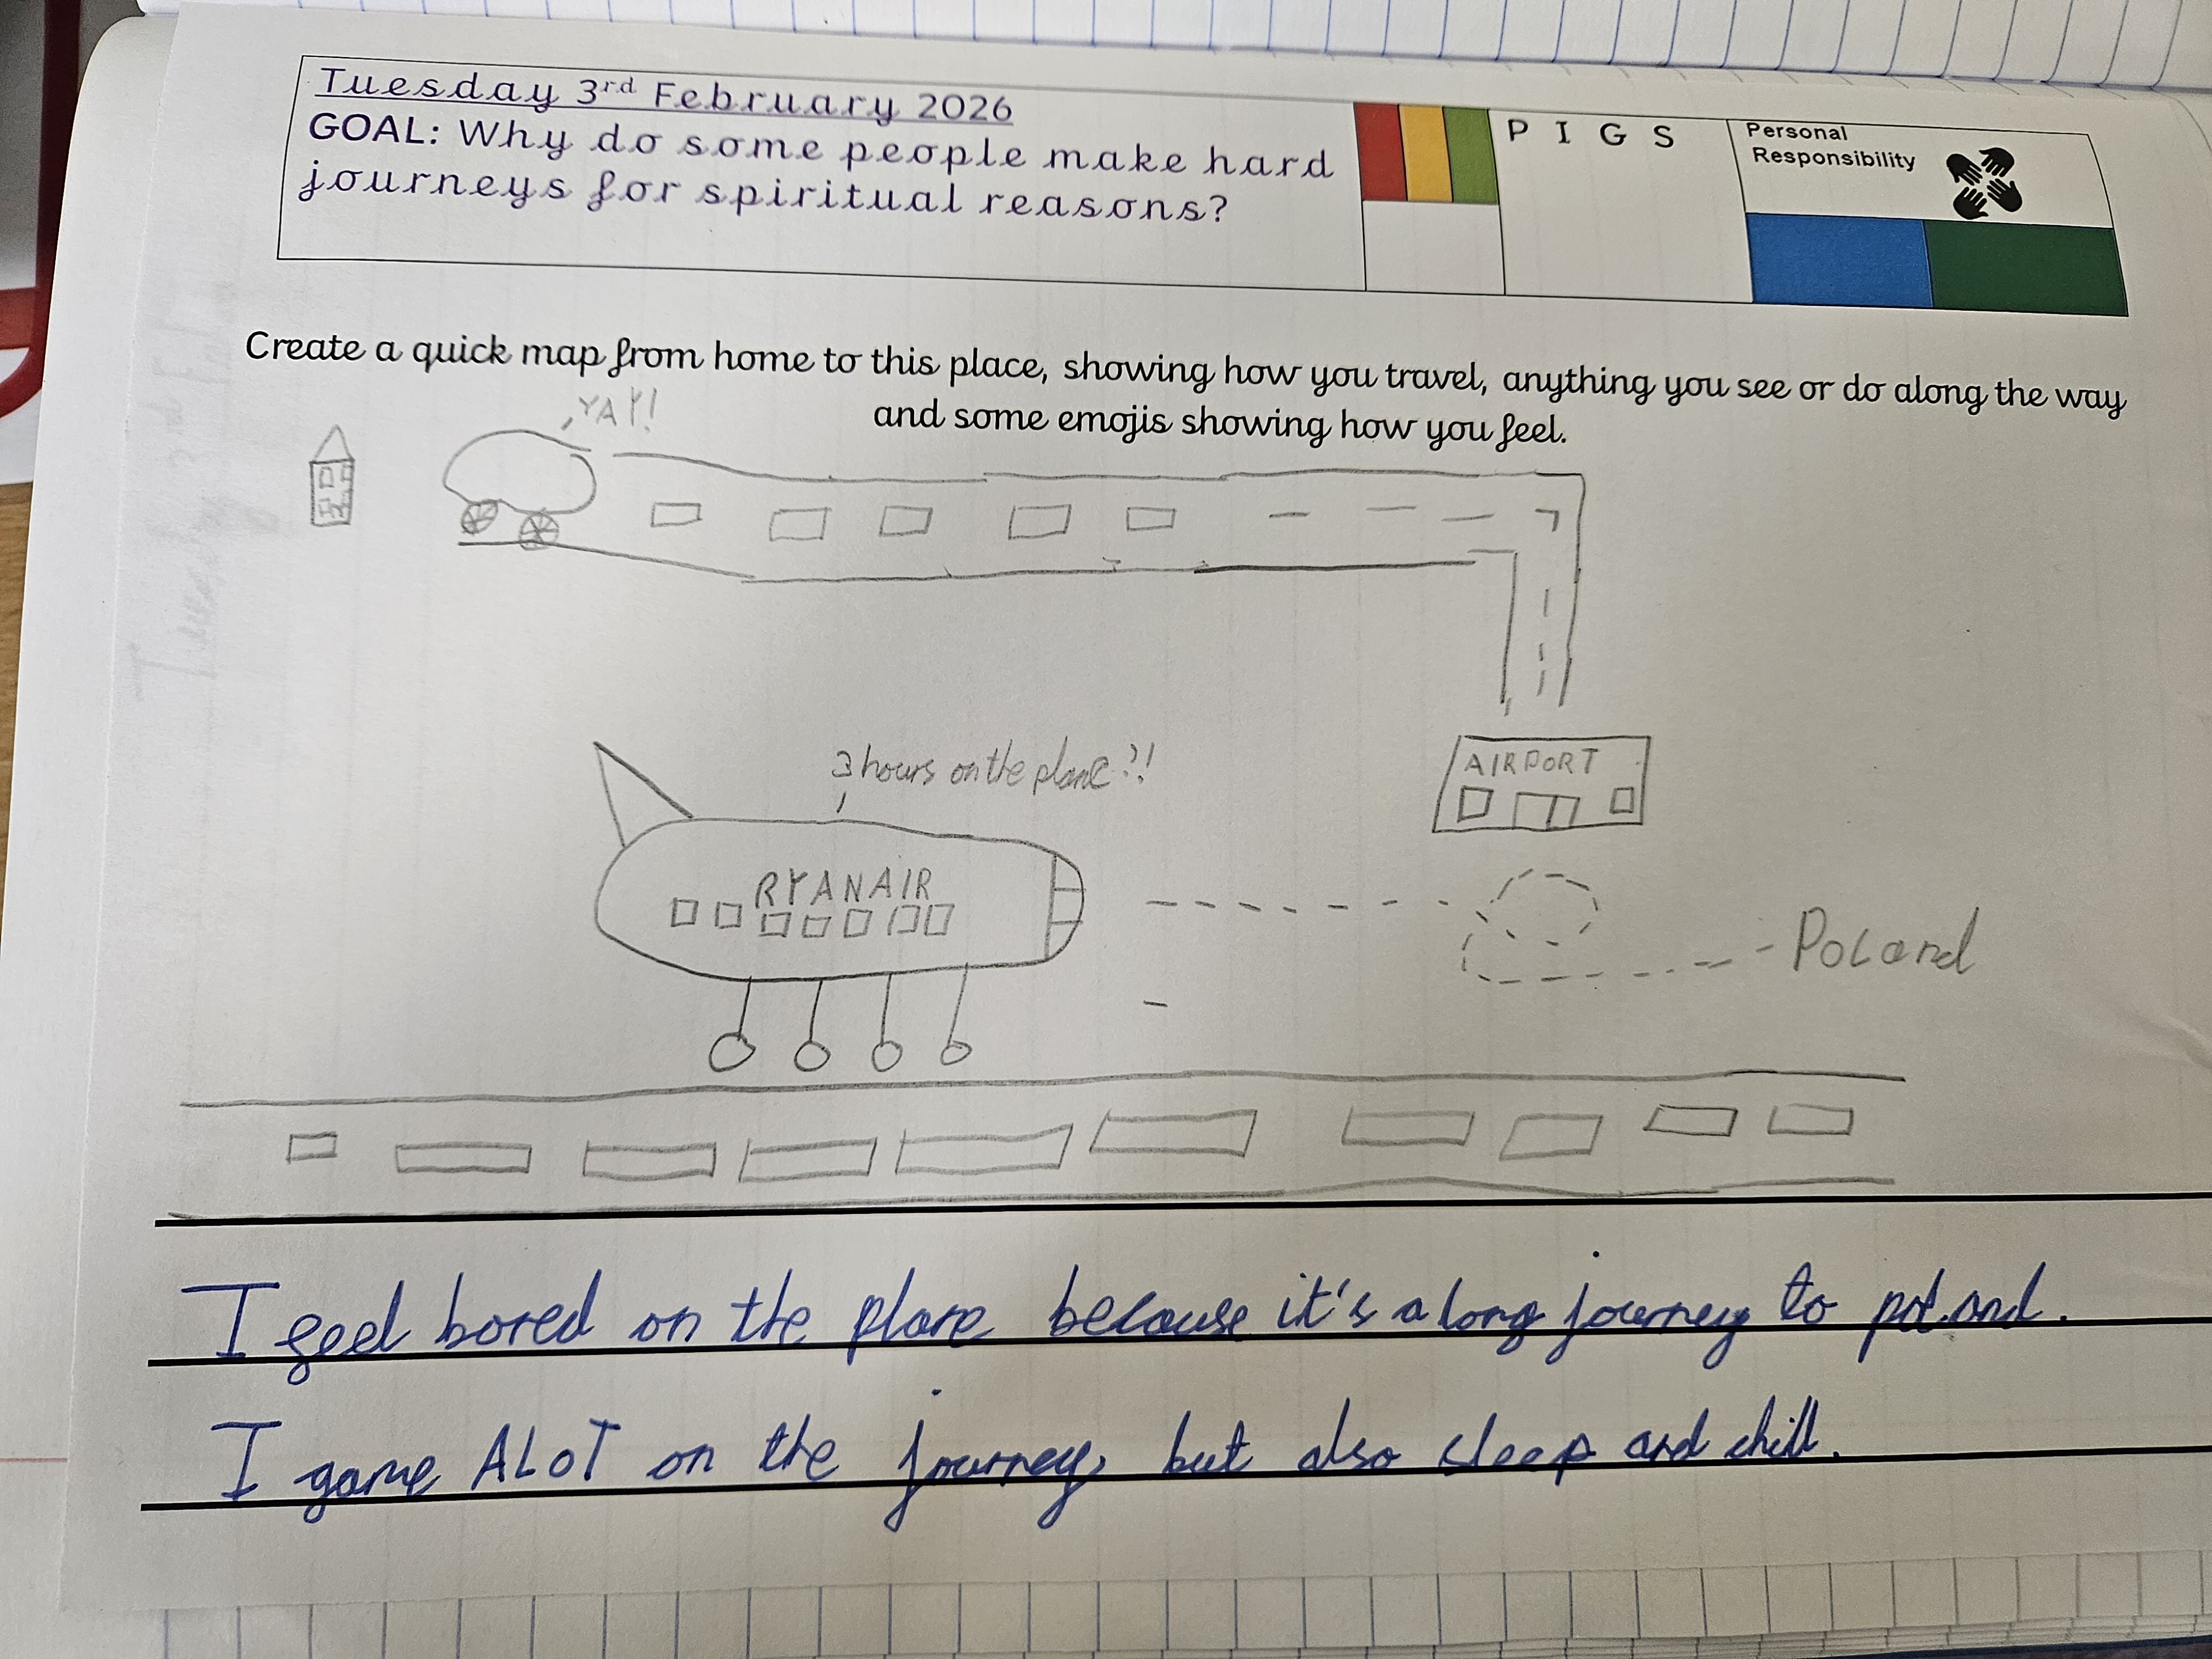 Tuesday 3rd February 2026
GOAL: Why do some people make hard
journeys for spiritual reasons?
P I G S
Personal
Responsibility
Create a quick map from home to this place, showing how you travel, anything you see or do along the way
and some emojis showing how you feel.
YAY!
AIRPORT
3 hours on the plane?!
RYANAIR
Poland
I feel bored on the plane because it's a long journey to poland.
I game ALOT on the journey, but also sleep and chill.